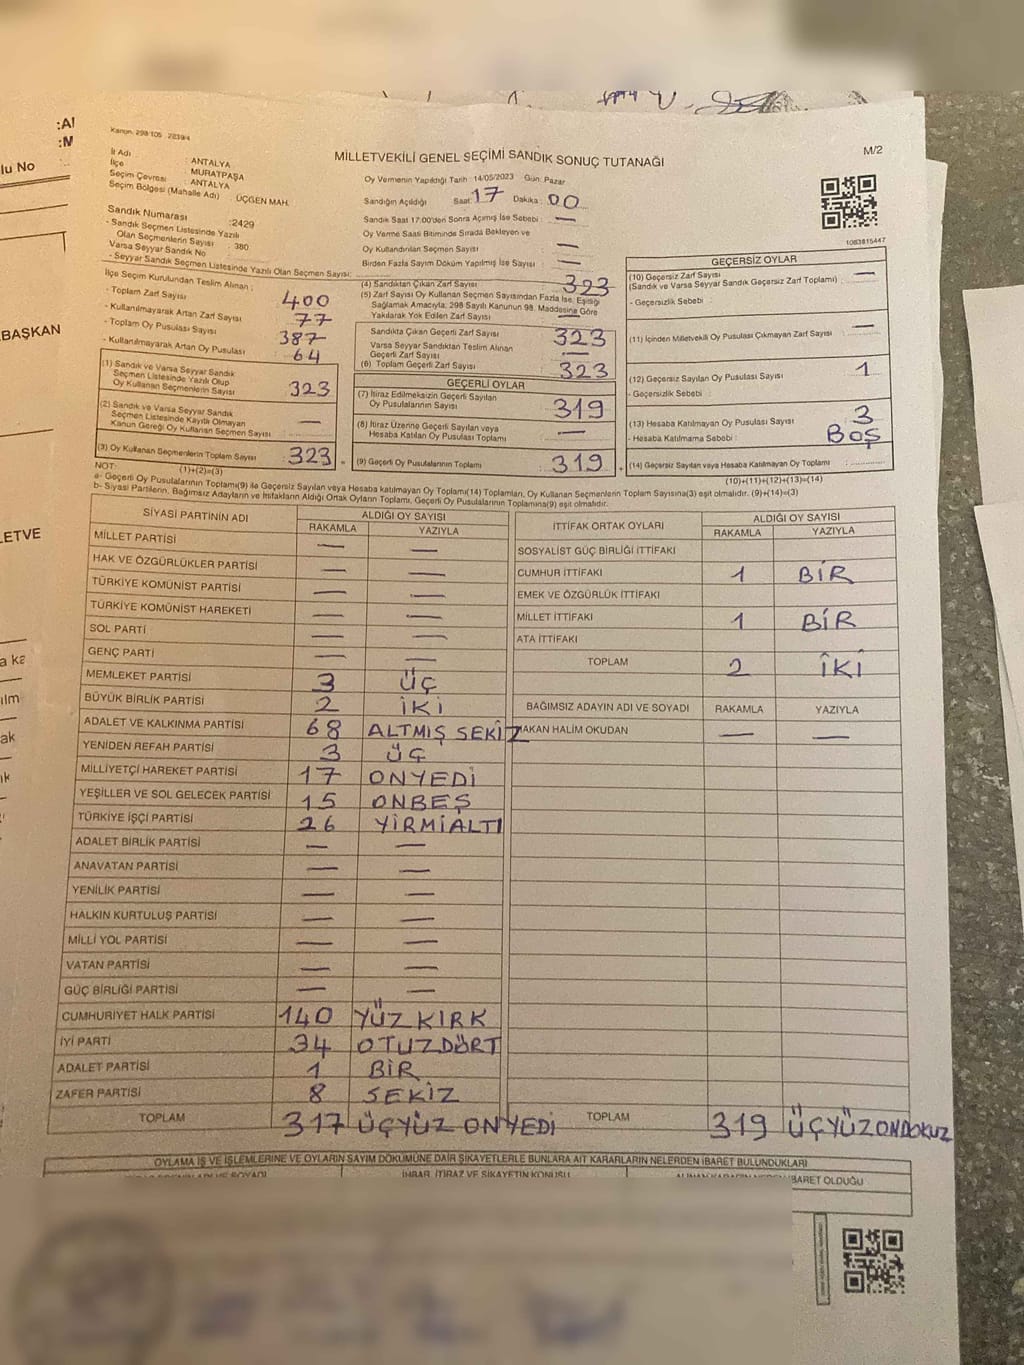 :Al
:M
lu No
BAŞKAN
LETVE
a ka
ılm
ak
ık
Kanon: 298/105
M/2
MİLLETVEKİLİ GENEL SEÇİMİ SANDIK SONUÇ TUTANAĞI
İl Adı : ANTALYA
İlçe : MURATPAŞA
Seçim Çevresi : ANTALYA
Seçim Bölgesi (Mahalle Adı) : ÜÇGEN MAH.
Sandık Numarası :2429
- Sandık Seçmen Listesinde Yazılı
Olan Seçmenlerin Sayısı : 380
Varsa Seyyar Sandık No
- Seyyar Sandık Seçmen Listesinde Yazılı Olan Seçmen Sayısı:
Oy Vermenin Yapıldığı Tarih : 14/05/2023 Gün: Pazar
Sandığın Açıldığı Saat: 17 Dakika: 00
Sandık Saat 17:00'den Sonra Açılmış İse Sebebi : —
Oy Verme Saati Bitiminde Sırada Bekleyen ve
Oy Kullandırılan Seçmen Sayısı —
Birden Fazla Sayım Döküm Yapılmış İse Sayısı —
1083815447
İlçe Seçim Kurulundan Teslim Alınan :
- Toplam Zarf Sayısı 400
- Kullanılmayarak Artan Zarf Sayısı 77
- Toplam Oy Pusulası Sayısı 387
- Kullanılmayarak Artan Oy Pusulası 64
(1) Sandık ve Varsa Seyyar Sandık
Seçmen Listesinde Yazılı Olup
Oy Kullanan Seçmenlerin Sayısı 323
(2) Sandık ve Varsa Seyyar Sandık
Seçmen Listesinde Kayıtlı Olmayan
Kanun Gereği Oy Kullanan Seçmen Sayısı —
(3) Oy Kullanan Seçmenlerin Toplam Sayısı : 323
(4) Sandıktan Çıkan Zarf Sayısı 323
(5) Zarf Sayısı Oy Kullanan Seçmen Sayısından Fazla İse, Eşitliği
Sağlamak Amacıyla; 298 Sayılı Kanunun 98. Maddesine Göre
Yakılarak Yok Edilen Zarf Sayısı —
Sandıkta Çıkan Geçerli Zarf Sayısı 323
Varsa Seyyar Sandıktan Teslim Alınan
Geçerli Zarf Sayısı —
(6) Toplam Geçerli Zarf Sayısı 323
GEÇERLİ OYLAR
(7) İtiraz Edilmeksizin Geçerli Sayılan
Oy Pusulalarının Sayısı 319
(8) İtiraz Üzerine Geçerli Sayılan veya
Hesaba Katılan Oy Pusulası Toplamı —
(9) Geçerli Oy Pusulalarının Toplamı : 319
GEÇERSİZ OYLAR
(10) Geçersiz Zarf Sayısı —
(Sandık ve Varsa Seyyar Sandık Geçersiz Zarf Toplamı) :
- Geçersizlik Sebebi :
(11) İçinden Milletvekili Oy Pusulası Çıkmayan Zarf Sayısı —
(12) Geçersiz Sayılan Oy Pusulası Sayısı 1
- Geçersizlik Sebebi :
(13) Hesaba Katılmayan Oy Pusulası Sayısı 3
- Hesaba Katılmama Sebebi : BOŞ
(14) Geçersiz Sayılan veya Hesaba Katılmayan Oy Toplamı
NOT: (1)+(2)=(3)
(10)+(11)+(12)+(13)=(14)
a- Geçerli Oy Pusulalarının Toplamı(9) ile Geçersiz Sayılan veya Hesaba katılmayan Oy Toplamı(14) Toplamları, Oy Kullanan Seçmenlerin Toplam Sayısına(3) eşit olmalıdır. (9)+(14)=(3)
b- Siyasi Partilerin, Bağımsız Adayların ve İttifakların Aldığı Ortak Oyların Toplamı, Geçerli Oy Pusulalarının Toplamına(9) eşit olmalıdır.
SİYASİ PARTİNİN ADI ALDIĞI OY SAYISI
RAKAMLA YAZIYLA
MİLLET PARTİSİ — —
HAK VE ÖZGÜRLÜKLER PARTİSİ — —
TÜRKİYE KOMÜNİST PARTİSİ — —
TÜRKİYE KOMÜNİST HAREKETİ — —
SOL PARTİ — —
GENÇ PARTİ — —
MEMLEKET PARTİSİ 3 ÜÇ
BÜYÜK BİRLİK PARTİSİ 2 İKİ
ADALET VE KALKINMA PARTİSİ 68 ALTMIŞ SEKİZ
YENİDEN REFAH PARTİSİ 3 ÜÇ
MİLLİYETÇİ HAREKET PARTİSİ 17 ONYEDİ
YEŞİLLER VE SOL GELECEK PARTİSİ 15 ONBEŞ
TÜRKİYE İŞÇİ PARTİSİ 26 YİRMİALTI
ADALET BİRLİK PARTİSİ — —
ANAVATAN PARTİSİ — —
YENİLİK PARTİSİ — —
HALKIN KURTULUŞ PARTİSİ — —
MİLLİ YOL PARTİSİ — —
VATAN PARTİSİ — —
GÜÇ BİRLİĞİ PARTİSİ — —
CUMHURİYET HALK PARTİSİ 140 YÜZ KIRK
İYİ PARTİ 34 OTUZDÖRT
ADALET PARTİSİ 1 BİR
ZAFER PARTİSİ 8 SEKİZ
TOPLAM 317 ÜÇYÜZ ONYEDİ
İTTİFAK ORTAK OYLARI ALDIĞI OY SAYISI
RAKAMLA YAZIYLA
SOSYALİST GÜÇ BİRLİĞİ İTTİFAKI
CUMHUR İTTİFAKI 1 BİR
EMEK VE ÖZGÜRLÜK İTTİFAKI
MİLLET İTTİFAKI 1 BİR
ATA İTTİFAKI
TOPLAM 2 İKİ
BAĞIMSIZ ADAYIN ADI VE SOYADI RAKAMLA YAZIYLA
HAKAN HALİM OKUDAN — —
TOPLAM 319 ÜÇYÜZONDOKUZ
OYLAMA İŞ VE İŞLEMLERİNE VE OYLARIN SAYIM DÖKÜMÜNE DAİR ŞİKAYETLERLE BUNLARA AİT KARARLARIN NELERDEN İBARET BULUNDUKLARI
İHBAR, İTİRAZ VE ŞİKAYETİN KONUSU
İBARET OLDUĞU